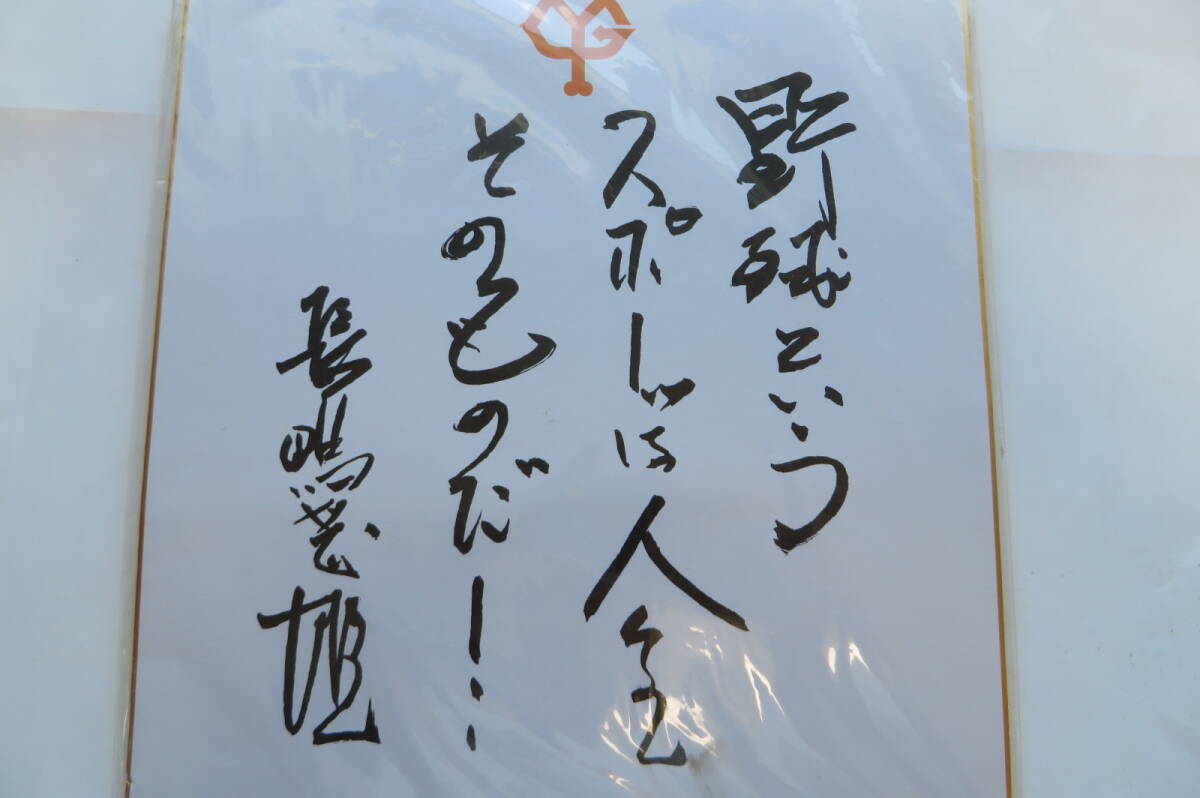 YG
野球という
スポーツは人生
そのものだ!..
長嶋茂雄